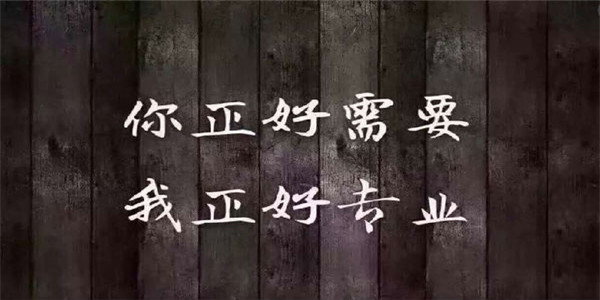 你正好需要
我正好专业